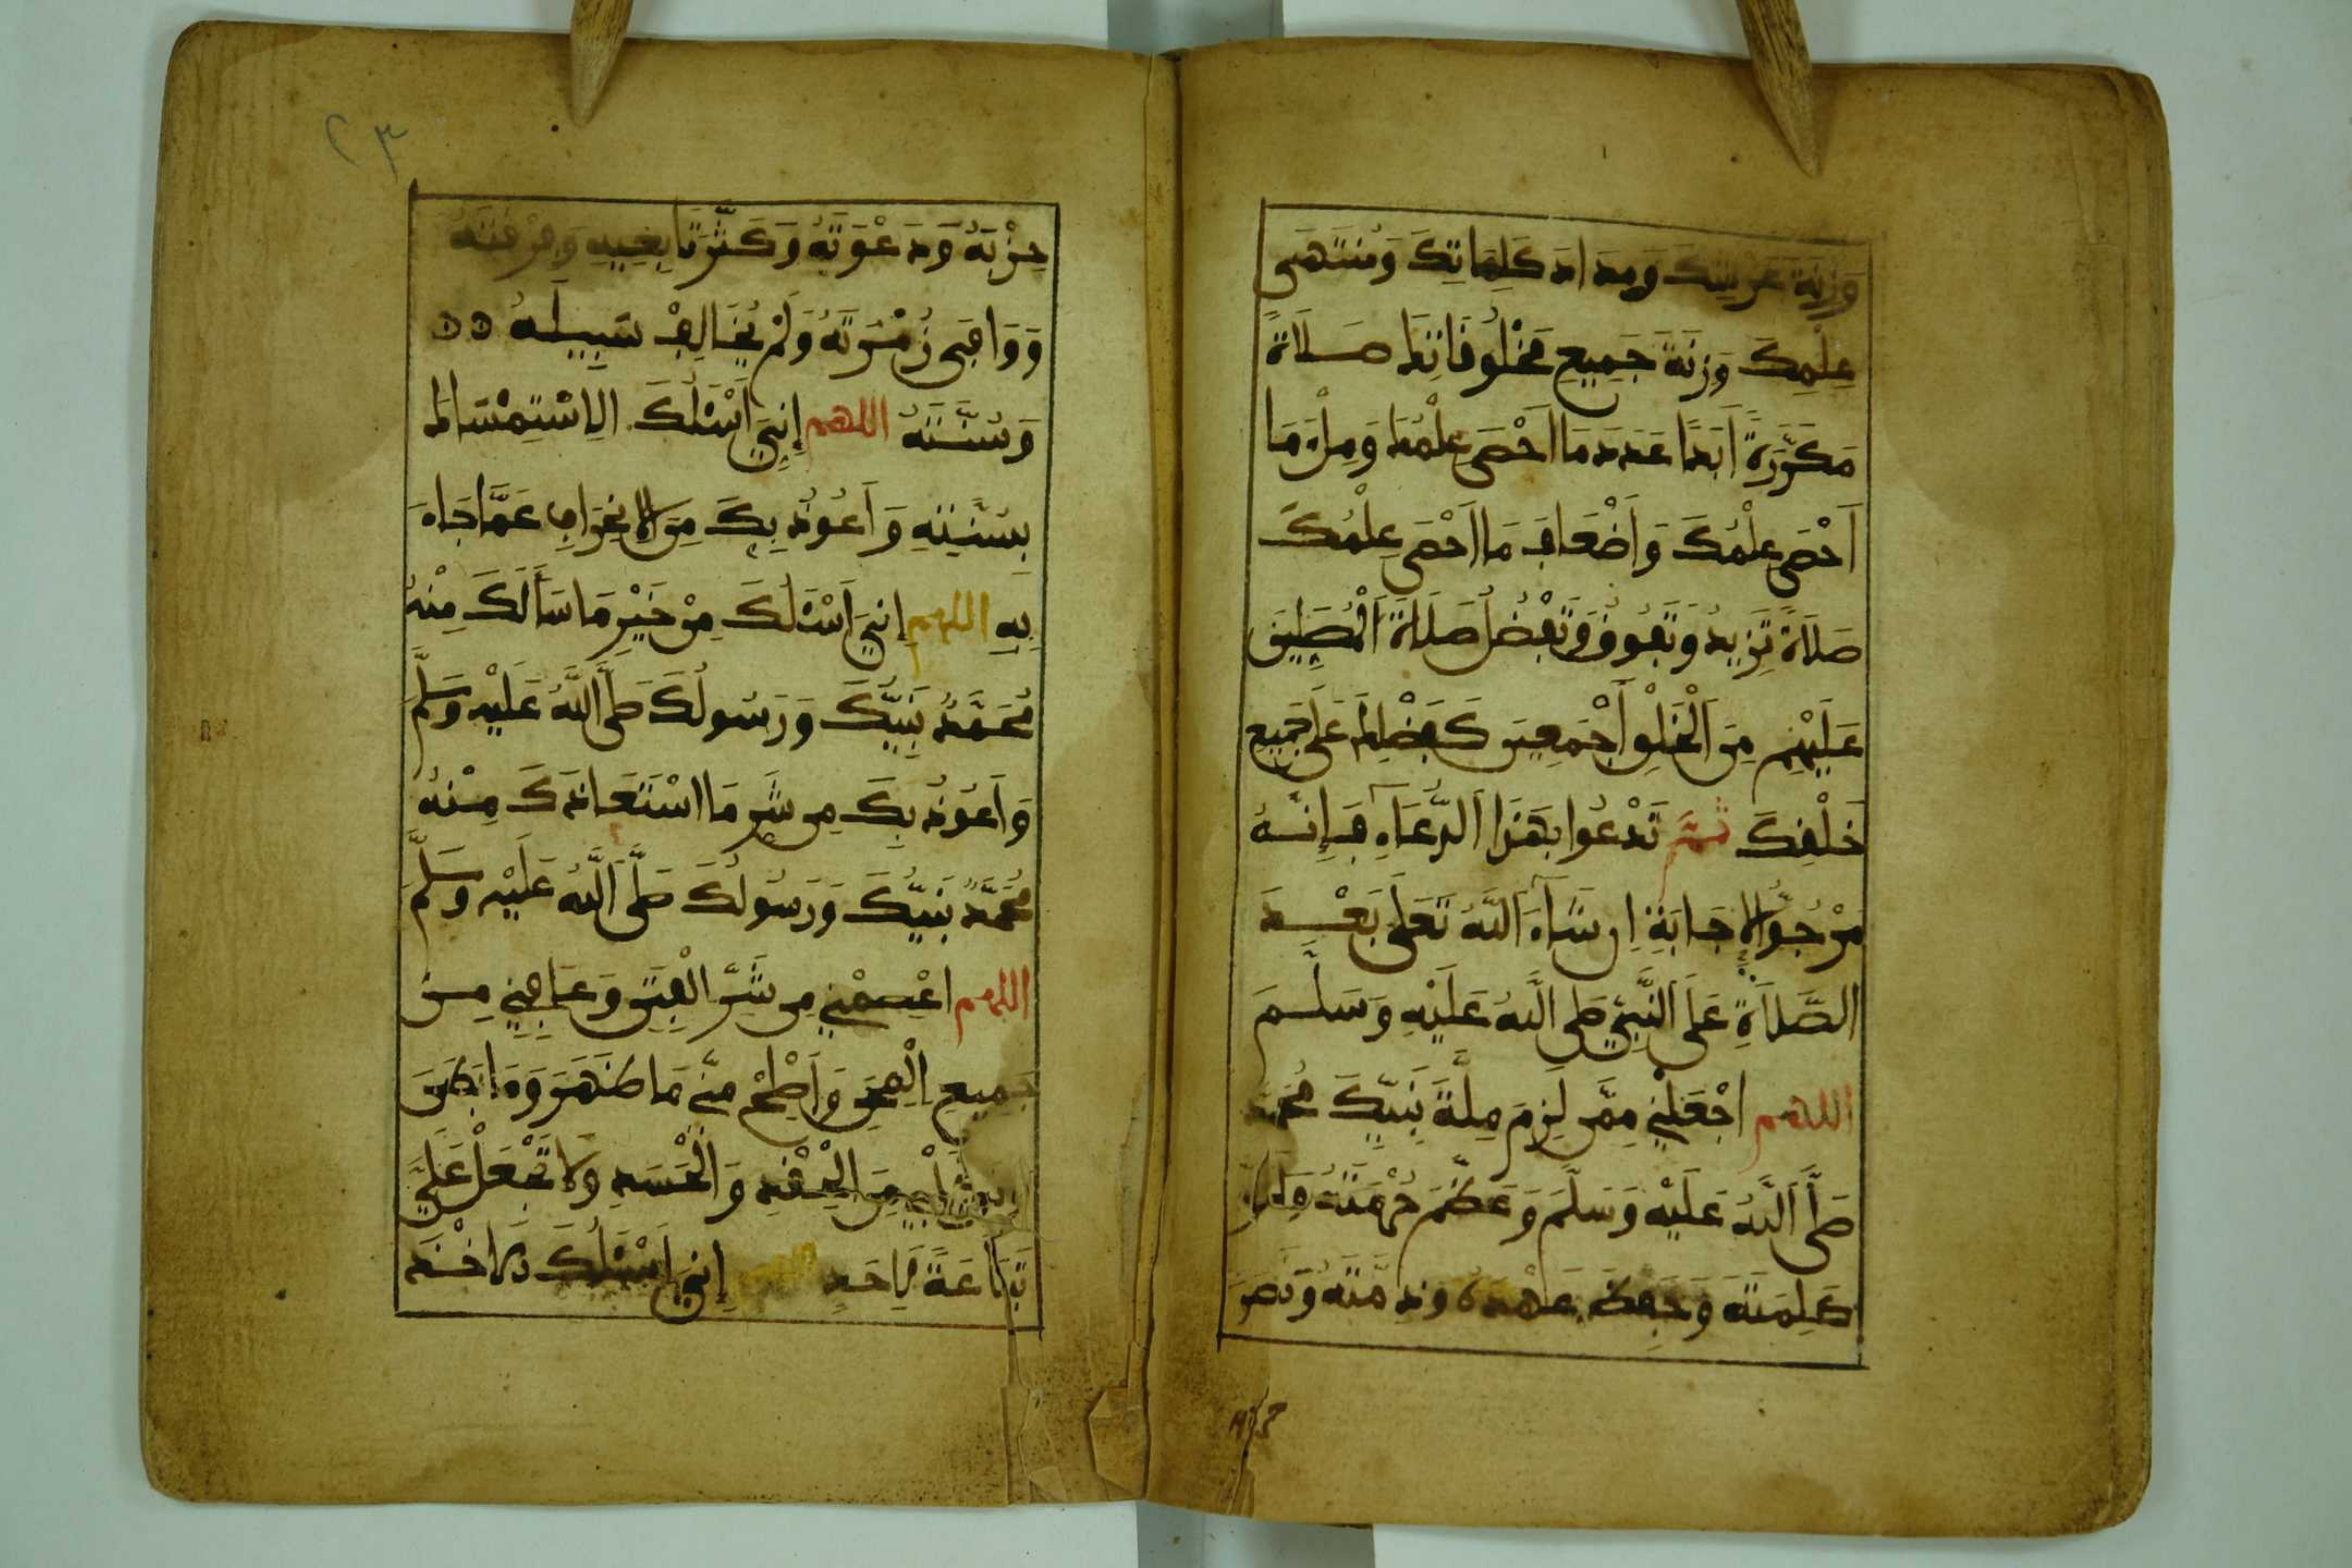 وَزِنَةَ عَرْشِكَ وَمِدَادَ كَلِمَاتِكَ وَمُنْتَهَى
عِلْمِكَ وَزِنَةَ جَمِيعِ مَخْلُوقَاتِكَ صَلَاةً
مُكَرَّرَةً أَبَدًا عَدَدَ مَا أَحْصَى عِلْمُكَ وَمِلْءَ مَا
أَحْصَى عِلْمُكَ وَأَضْعَافَ مَا أَحْصَى عِلْمُكَ
صَلَاةً تَزِيدُ وَتَفُوقُ وَتَفْضُلُ صَلَاةَ الْمُصَلِّينَ
عَلَيْهِمْ مِنَ الْخَلْقِ أَجْمَعِينَ كَفَضْلِكَ عَلَى جَمِيعِ
خَلْقِكَ ثُمَّ تَدْعُوا بِهَذَا الدُّعَاءِ فَإِنَّهُ
مَرْجُوُّ الْإِجَابَةِ إِنْ شَاءَ اللَّهُ تَعَلَى بَعْدَ
الصَّلَاةِ عَلَى النَّبِيِّ صَلَّى اللَّهُ عَلَيْهِ وَسَلَّمَ
اللَّهُمَّ اجْعَلْنِي مِمَّنْ لَزِمَ مِلَّةَ نَبِيِّكَ مُحَمَّدٍ
صَلَّى اللَّهُ عَلَيْهِ وَسَلَّمَ وَعَظَّمَ حُرْمَتَهُ وَأَعَزَّ
كَلِمَتَهُ وَحَفِظَ عَهْدَهُ وَذِمَّتَهُ وَنَصَرَ
حزبه
٢٣
حِزْبَهُ وَدَعْوَتَهُ وَكَثَّرَ تَابِعِيهِ وَفِرْقَتَهُ
وَوَافَى زُمْرَتَهُ وَلَمْ يُخَالِفْ سَبِيلَهُ
وَسُنَّتَهُ اللهم إِنِّي أَسْئَلُكَ الِاسْتِمْسَاكَ
بِسُنَّتِهِ وَأَعُوذُ بِكَ مِنَ الْإِنْحِرَافِ عَمَّا جَاءَ
بِهِ اللهم إِنِّي أَسْئَلُكَ مِنْ خَيْرِ مَا سَأَلَكَ مِنْهُ
مُحَمَّدٌ نَبِيُّكَ وَرَسُولُكَ صَلَّى اللَّهُ عَلَيْهِ وَسَلَّمَ
وَأَعُوذُ بِكَ مِنْ شَرِّ مَا اسْتَعَاذَكَ مِنْهُ
مُحَمَّدٌ نَبِيُّكَ وَرَسُولُكَ صَلَّى اللَّهُ عَلَيْهِ وَسَلَّمَ
اللهم اعْصِمْنِي مِنْ شَرِّ الْفِتَنِ وَعَافِنِي مِنْ
جَمِيعِ الْمِحَنِ وَأَصْلِحْ مِنِّي مَا ظَهَرَ وَمَا بَطَنَ
وَنَقِّ قَلْبِي مِنَ الْحِقْدِ وَالْحَسَدِ وَلَا تَجْعَلْ عَلَيَّ
تَبَاعَةً لِأَحَدٍ اللهم إِنِّي أَسْئَلُكَ الْأَخْذَ